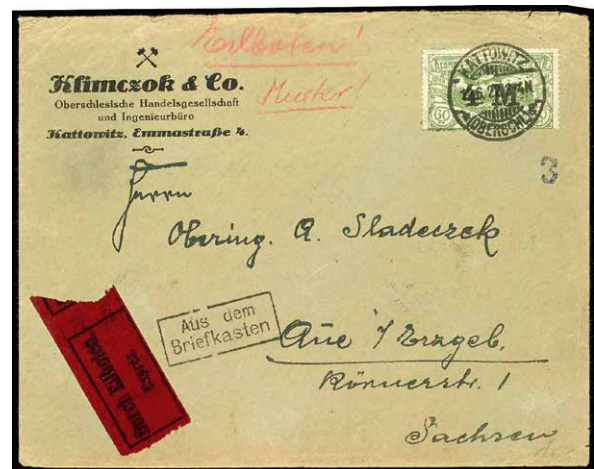 Eilboten!
Muster!
Klimczok & Co.
Oberschlesische Handelsgesellschaft
und Ingenieurbüro
Kattowitz, Emmastraße 4.
KATTOWITZ
4 M
(OBERSCHL)
60
3
Herrn
Obering. A. Sladeczek
Aus dem
Briefkasten
Aue i/Erzgeb.
Körnerstr. 1
Sachsen
Durch Eilboten